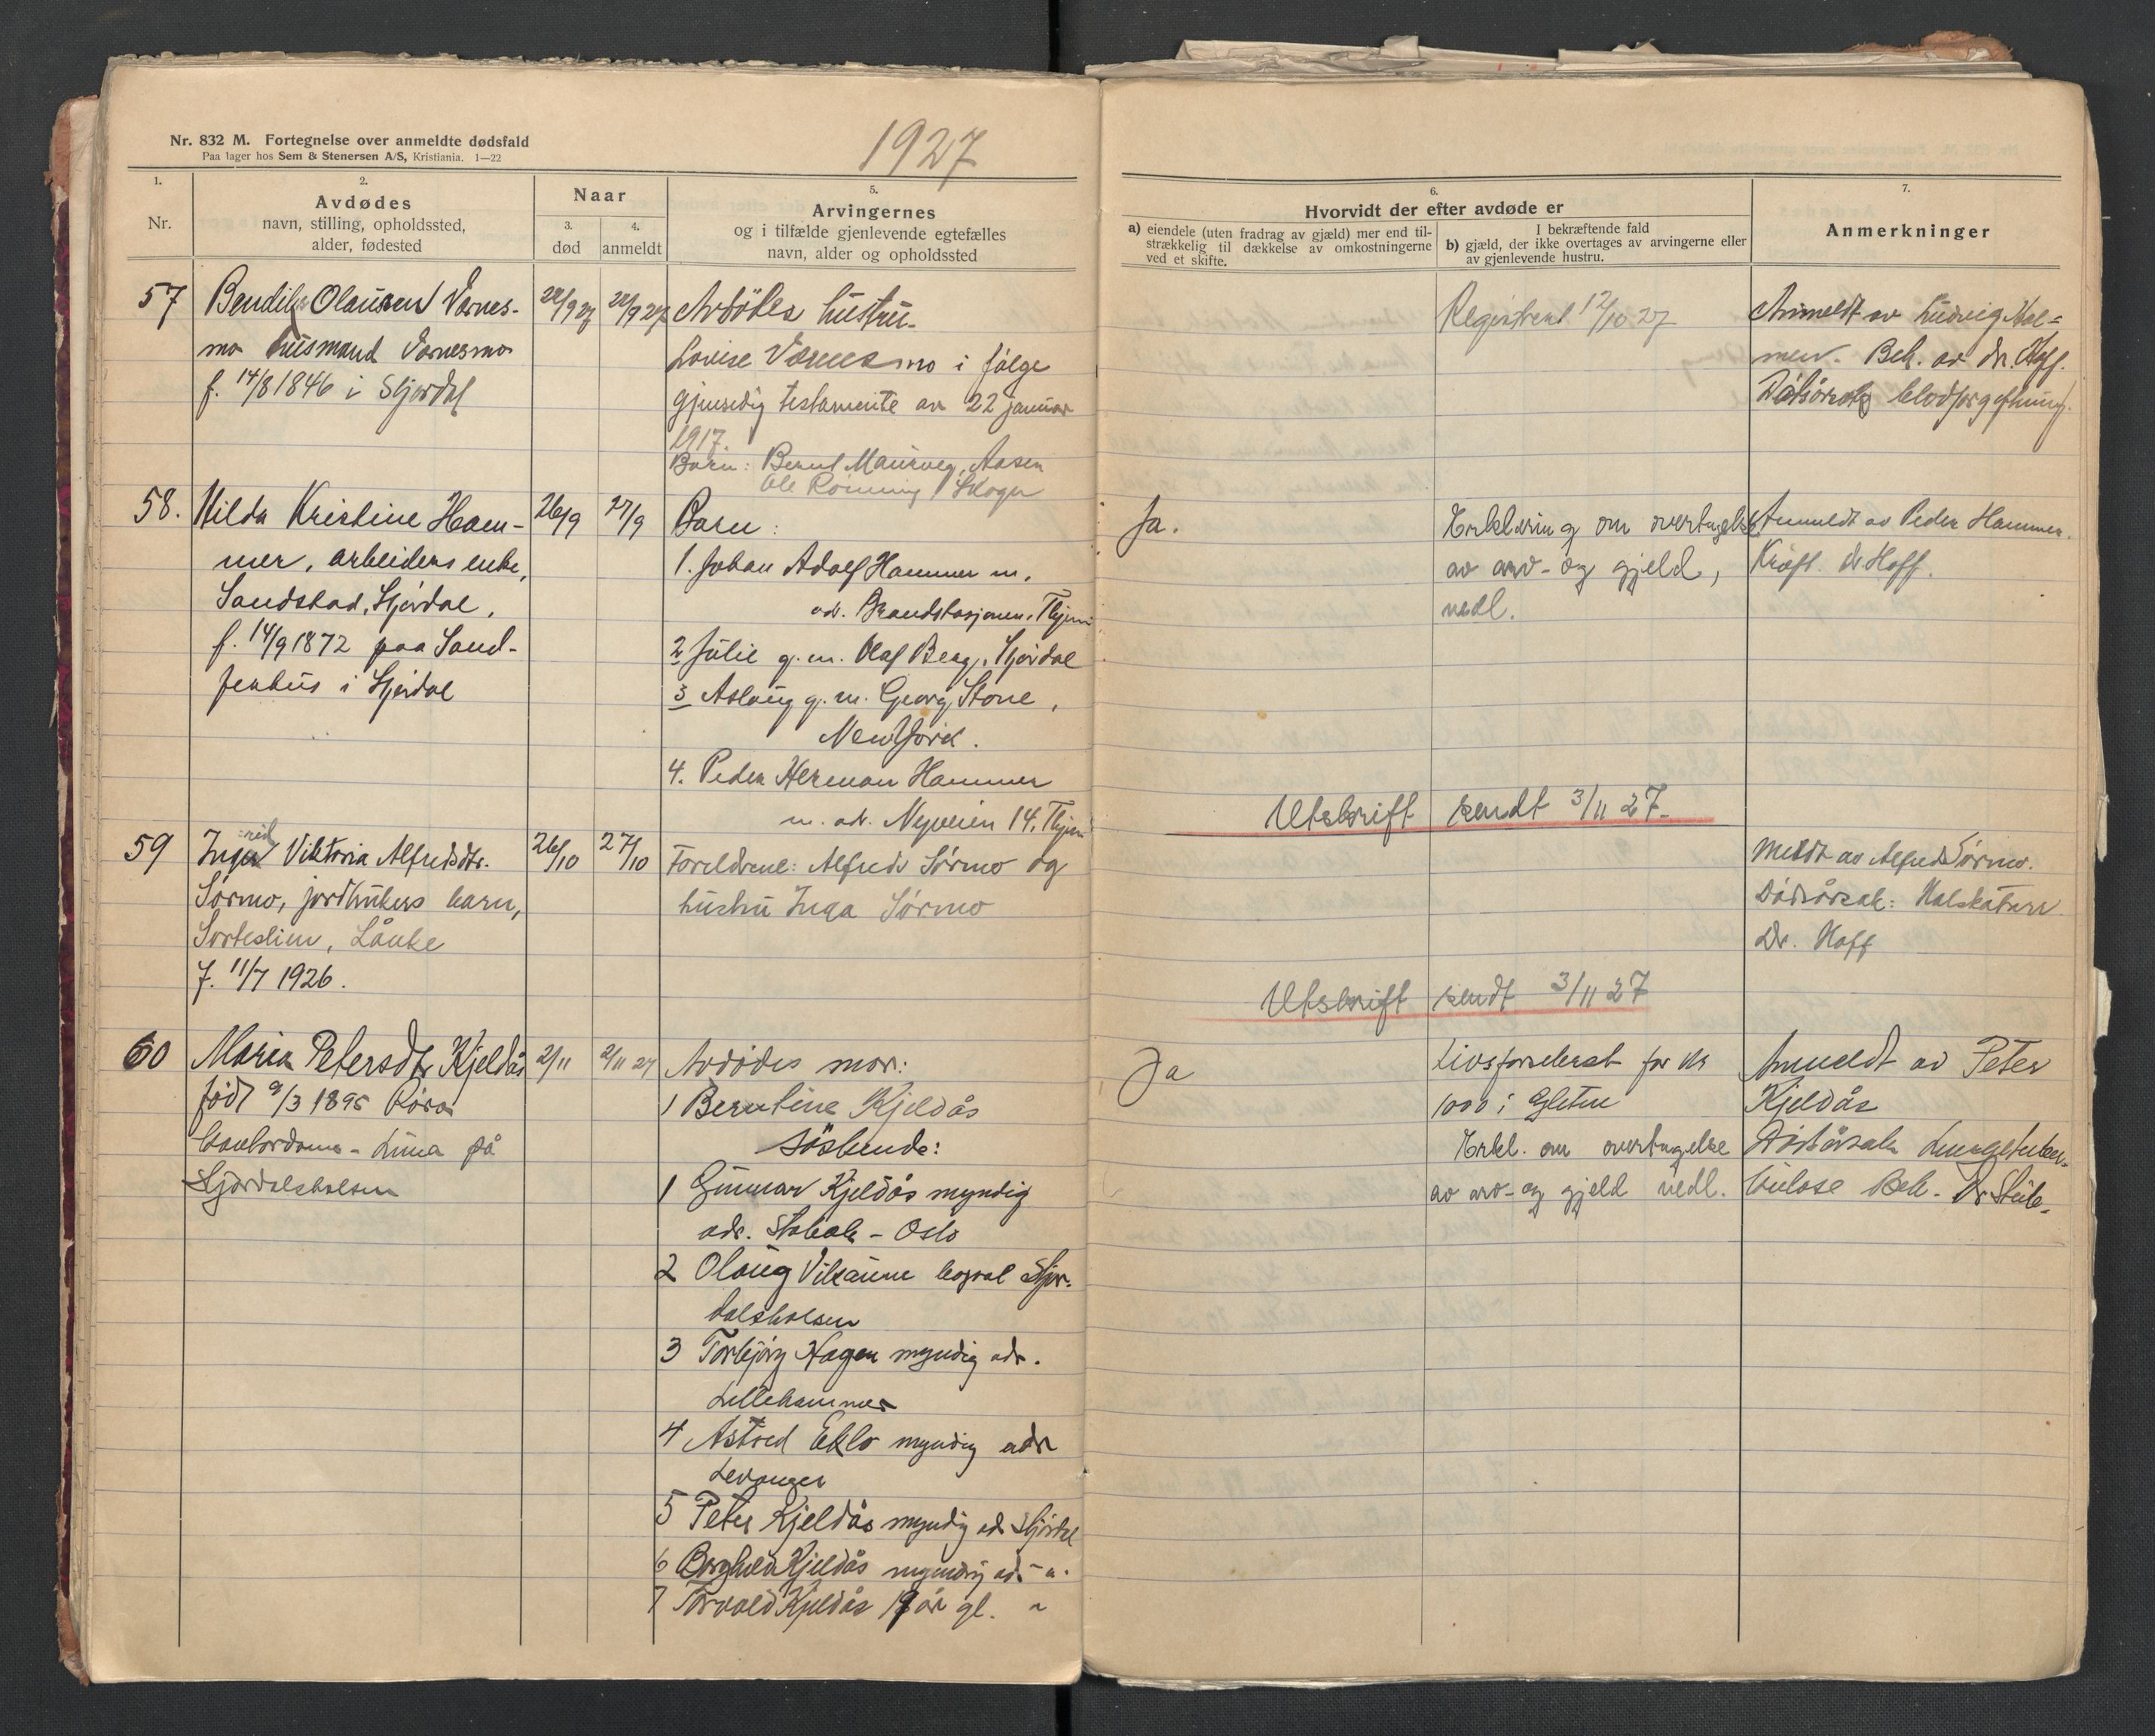 Nr. 832 M. Fortegnelse over anmeldte dødsfald
Paa lager hos Sem & Stenersen A/S, Kristiania. 1—22
1927
1.
Nr.
2.
Avdødes
navn, stilling, opholdssted,
alder, fødested
Naar
3.
død
4.
anmeldt
5.
Arvingernes
og i tilfælde gjenlevende egtefælles
navn, alder og opholdssted
6.
Hvorvidt der efter avdøde er
a) eiendele (uten fradrag av gjæld) mer end til-
strækkelig til dækkelse av omkostningerne
ved et skifte.
I bekræftende fald
b) gjæld, der ikke overtages av arvingerne eller
av gjenlevende hustru.
7.
Anmerkninger
57
Bendik Olausen Værnes-
mo husmand Værnesmo
f. 14/8 1846 i Stjørdal
22/9 27
22/9 27
Avdødes hustru
Lovise Værnesmo i følge
gjensidig testamente av 22 januar
1917.
Barn: Bernt Maurveg, Aasen
Ole Rønning, Skogn
Registrert 12/10 27
Anmeldt av Ludvig Hal=
men. Beh. av dr. Hoff.
Dødsårsak blodforgiftning.
58.
Hilda Kristine Ham-
mer, arbeiders enke,
Sandstad, Stjørdal,
f. 14/9 1872 paa Sand-
ferhus i Stjørdal
26/9
27/9
Barn:
1. Johan Adolf Hammer m.
adr. Brandstasjonen, Thjem
2 Julie g. m. Olaf Berg, Stjørdal
3 Aslaug g. m. Georg Stone,
New York.
4. Peder Herman Hammer
m. adr. Nyveien 14, Thjem
Ja.
Erklæring om overtagelse
av arv- og gjeld,
vedl.
Anmeldt av Peder Hammer.
Kræft. dr Hoff.
Utskrift sendt 3/11 27.
59
Ingrid Viktoria Alfredsdtr.
Sørmo, jordbrukers barn,
Sorteslim, Lånke
f. 11/7 1926.
26/10
27/10
Foreldrene: Alfred Sørmo og
hustru Inga Sørmo
Meldt av Alfred Sørmo.
Dødsårsak: Halskatarr
Dr. Hoff
Utskrift sendt 3/11 27
60
Maria Petersdtr Kjeldås
født 9/3 1895 Røra
Kontordame - Lima på
Stjørdalshalsen
2/11
2/11 27
Avdødes mor:
1 Berntine Kjeldås
Søskende:
1 Gunnar Kjeldås myndig
adr. Stabæk - Oslo
2 Olaug Vikaune bopæl Stjør-
dalshalsen
3 Torbjørg Hagen myndig adr.
Lillehammer
4 Astrid Eklo myndig adr
Levanger
5 Peter Kjeldås myndig adr Stjørdal
6 Borghild Kjeldås myndig adr — " .
7 Torvald Kjeldås 19 år gl. "
Ja
Livsforsikret for kr
1000 i Gjeten
Erkl. om overtagelse
av arv- og gjeld vedl.
Anmeldt av Peter
Kjeldås
Dødsårsak Lungetuber-
kulose Beh.